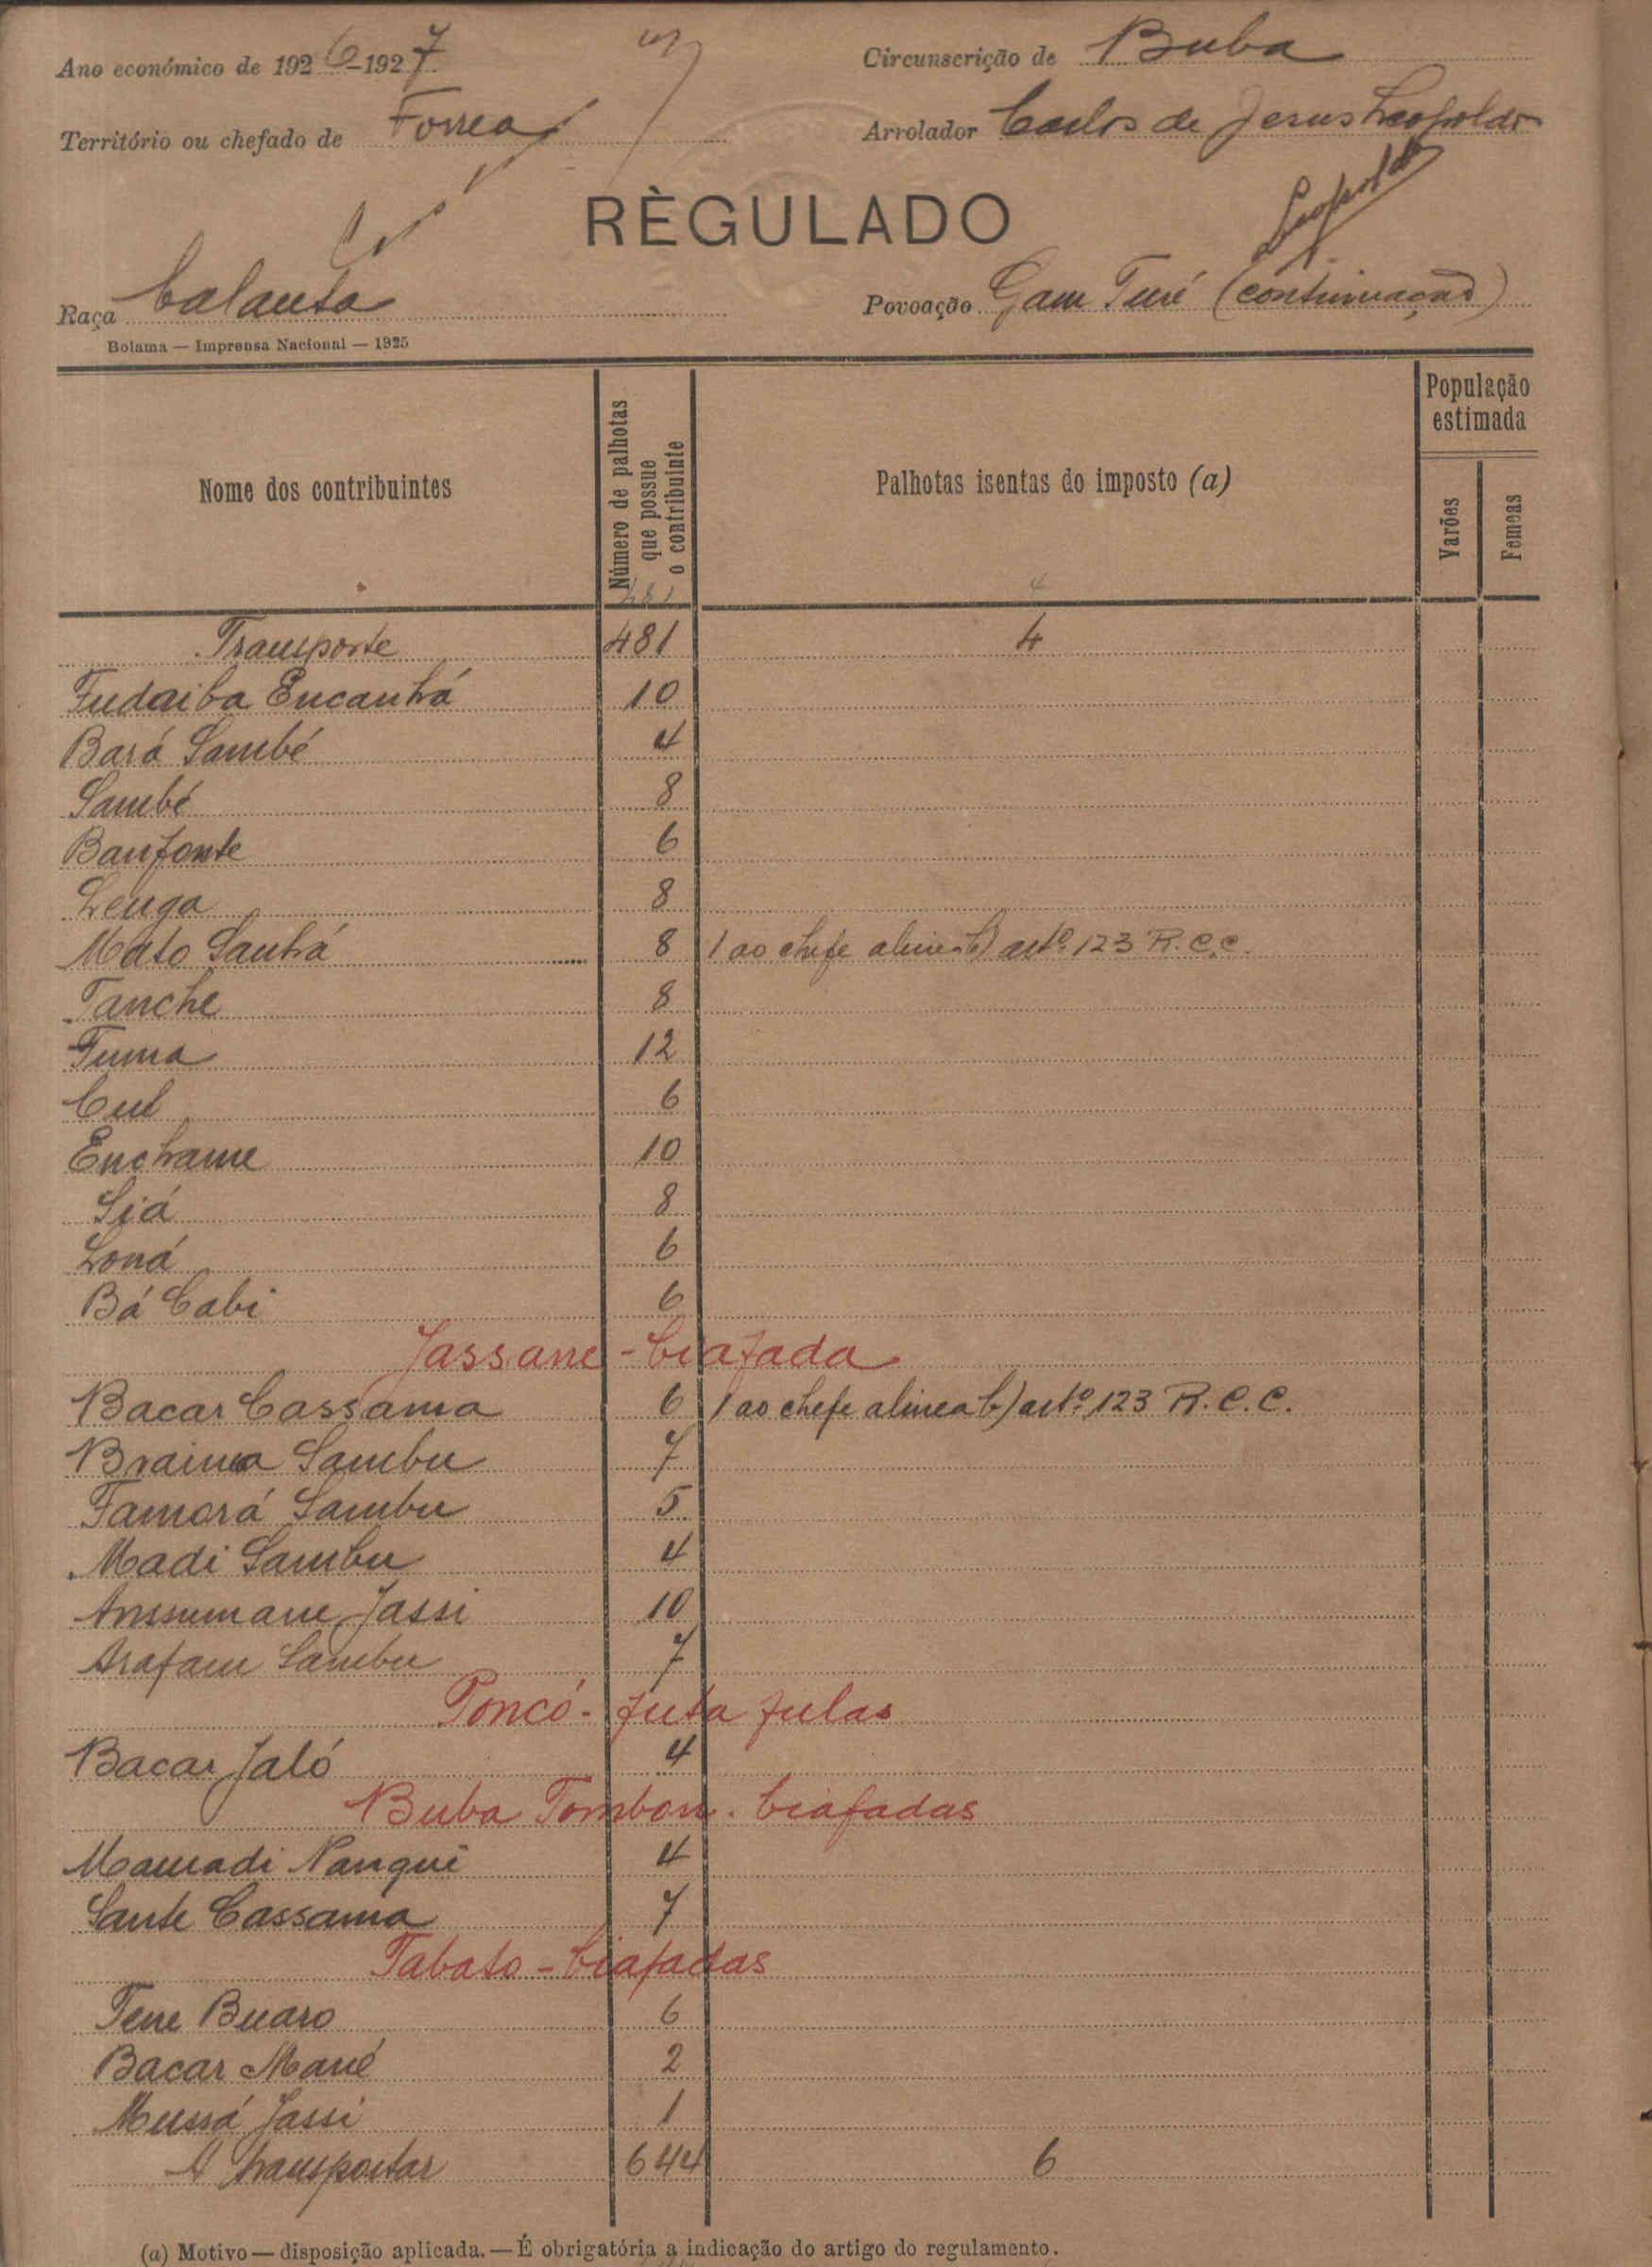 Ano económico de 1926-1927
Circunscrição de Buba
Território ou chefado de Forrea
Arrolador Carlos de Jesus Leopoldo
Leopoldo
RÈGULADO
Raça Balanta
Povoação Gam Turé (continuação)
Bolama — Imprensa Nacional — 1925
Nome dos contribuintes
Número de palhotas que possue o contribuinte
Palhotas isentas do imposto (a)
População estimada
Varões
Femeas
481 4
Transporte 481 4
Fudaiba Encanhá 10
Bará Sambé 4
Sambé 8
Banfonte 6
Lenga 8
Mato Sanhá 8 1 ao chefe alinea b) artº. 123 R.C.C.
Tanche 8
Fuma 12
Cul 6
Enchame 10
Siá 8
Loná 6
Bá Cabi 6
Jassane - biafada
Bacar Cassama 6 1 ao chefe alinea b) artº. 123 R.C.C.
Braima Sambu 7
Famorá Sambu 5
Madi Sambu 4
Anssumane Jassi 10
Arafam Sambu 7
Poncó - futa fulas
Bacar Jaló 4
Buba Tombon - biafadas
Mamadi Nanqui 4
Sante Cassama 7
Tabato - biafadas
Tene Buaro 6
Bacar Mané 2
Mussá Jassi 1
A transportar 644 6
(a) Motivo — disposição aplicada. — É obrigatória a indicação do artigo do regulamento.